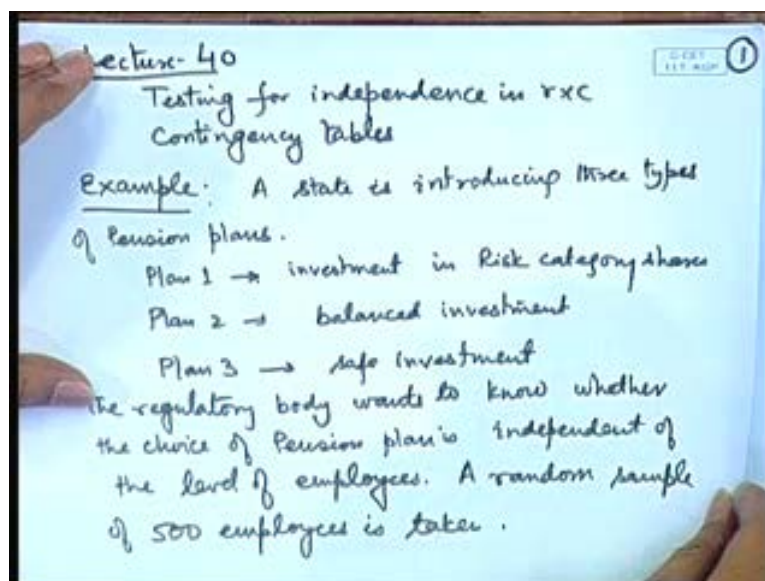 Lecture-40
C-CET
I.I.T. KGP
1
Testing for independence in rxc
Contingency tables
Example: A state is introducing three types
of Pension plans.
Plan 1 → investment in Risk category shares
Plan 2 → balanced investment
Plan 3 → safe investment
The regulatory body wants to know whether
the choice of Pension plan is independent of
the level of employees. A random sample
of 500 employees is taken.